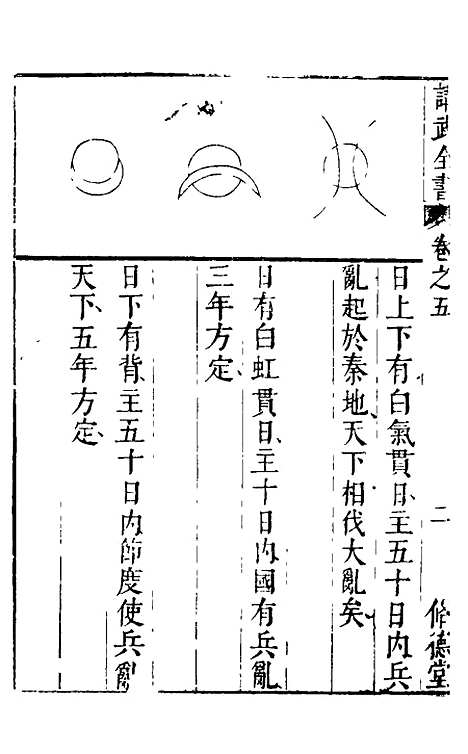 講武全書
卷之五
二
脩德堂
日上下有白氣貫日、主五十日內兵
亂起於秦地、天下相伐大亂矣、
日有白虹貫日、主十日內國有兵亂
三年方定、
日下有背、主五十日內節度使兵亂
天下、五年方定、